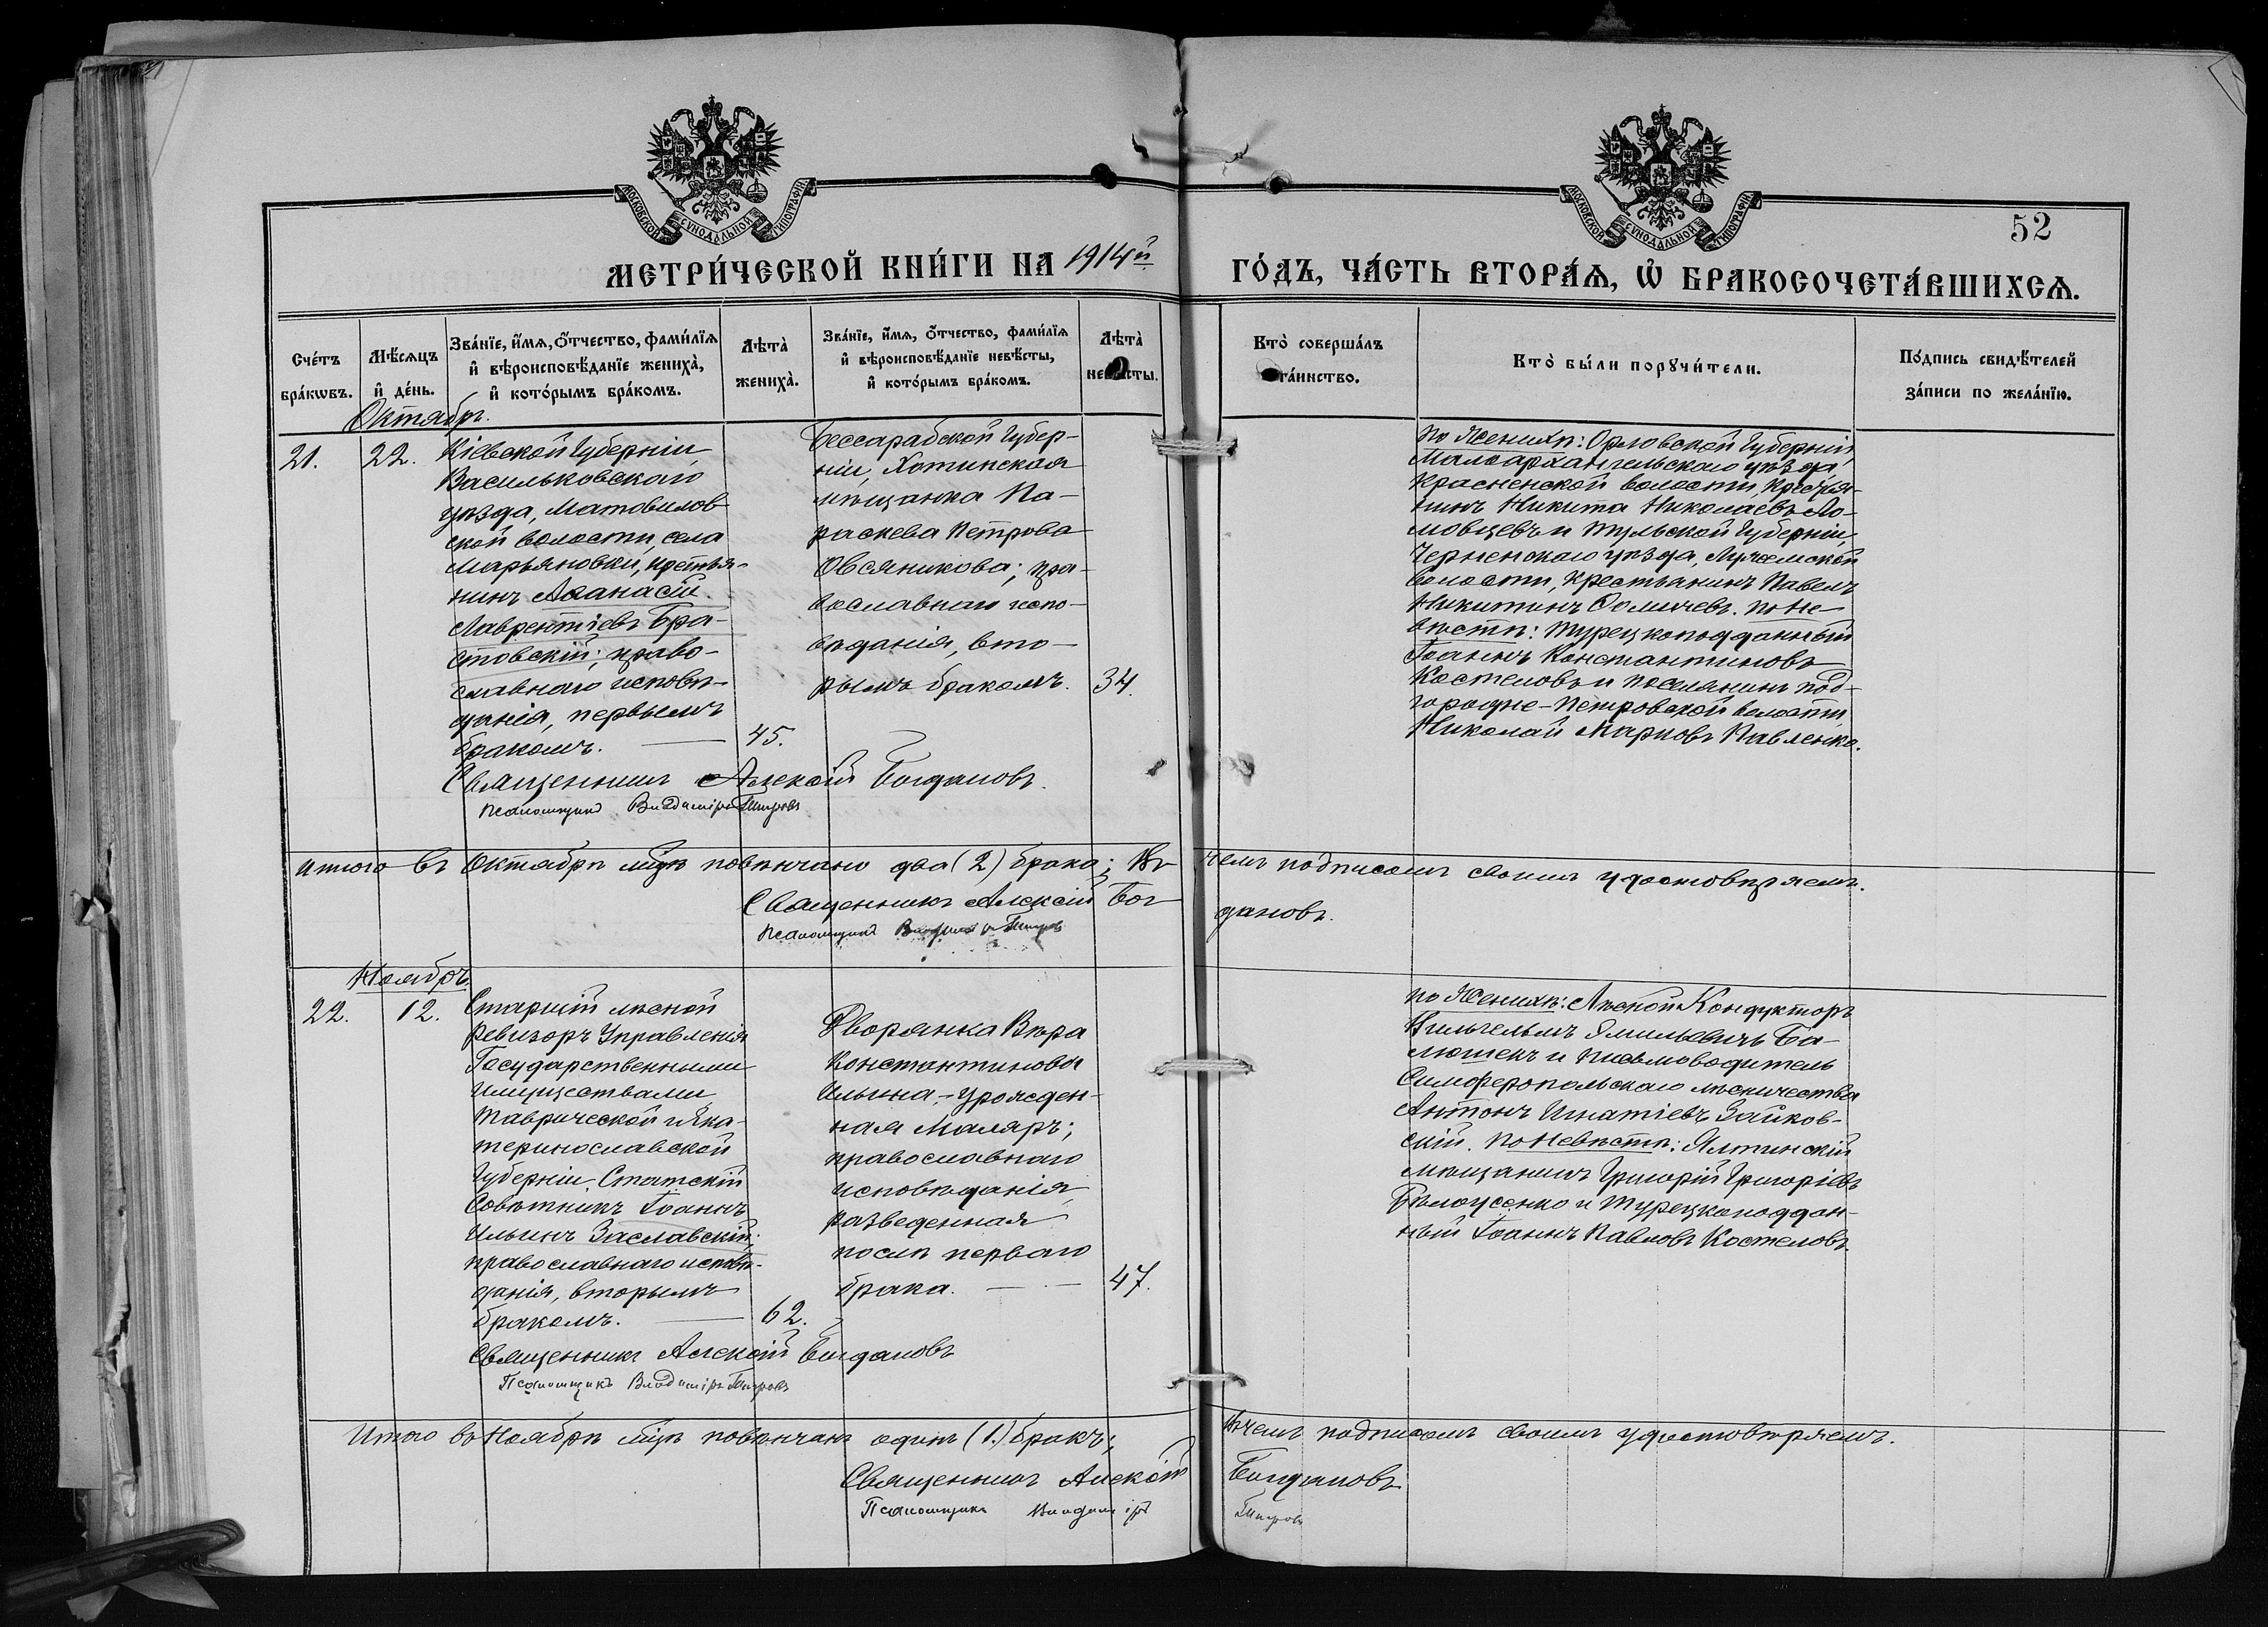 МОСКОВСКОЙ СУНОДАЛЬНОЙ ТИПОГРАФІИ
МОСКОВСКОЙ СУНОДАЛЬНОЙ ТИПОГРАФІИ
52
МЕТРИ́ЧЕСКОЙ КНИ́ГИ НА 1914й
ГО́ДЪ, ЧА́СТЬ ВТОРА́Ѧ, Ѡ҆ БРАКОСОЧЕТА́ВШИХСѦ.
Сче́тъ бра́кѡвъ.
Мѣ́сяцъ и҆ де́нь.
Зва́нїе, и҆́мя, ѻ҆́тчество, фами́лїя
и҆ вѣроисповѣ́данїе жениха̀,
и҆ кото́рымъ бра́комъ.
Лѣта̀ жениха̀.
Зва́нїе, и҆́мя, ѻ҆́тчество, фами́лїя
и҆ вѣроисповѣ́данїе невѣ́сты,
и҆ кото́рымъ бра́комъ.
Лѣта̀ невѣ́сты.
Кто̀ соверша́лъ та́инство.
Кто̀ бы́ли порꙋчи́тели.
По́дпись свидѣ́телей
за́писи по жела́нїю.
Октябрь.
21.
22.
Кіевской Губерніи
Васильковскаго
уѣзда, Матовилов
ской волости, села
Марьяновки, крестья-
нинъ Аѳанасій
Лаврентіевъ Бра-
стовскій; право-
славнаго исповѣ-
данія, первымъ
бракомъ.
45.
Бессарабской Губер-
ніи, Хотинская
мѣщанка Па-
раскева Петрова
Овсяникова; пра-
вославнаго испо-
вѣданія, вто-
рымъ бракомъ.
34.
по Женихѣ: Орловской Губерніи,
Малоархангельскаго уѣзда,
Красненской волости, крестья-
нинъ Никита Николаевъ Ло-
мовцевъ и Тульской Губерніи,
Чернскаго уѣзда,
волости, крестьянинъ Павелъ
Никитинъ по Не-
вѣстѣ: Турецкоподданный
Іоаннъ Константиновъ
Костеловъ и поселянинъ Под-
городне-Петровской волости
Николай Марковъ Павленко.
Священникъ Алексій Богдановъ.
Псаломщикъ Владиміръ
Итого въ Октябрѣ мцѣ повѣнчано два (2) брака; Въ
чемъ подписомъ своимъ удостовѣряемъ.
Священникъ Алексій Бог
дановъ.
Псаломщикъ Владиміръ
Ноябрь.
22.
12.
Старшій лѣсной
ревизоръ Управленія
Государственными
Имуществами
Таврической и Ека-
теринославской
Губерніи, Статскій
Совѣтникъ Іоаннъ
Ильинъ Заславскій;
православнаго исповѣ-
данія, вторымъ
бракомъ.
62.
Дворянка Вѣра
Константинова
Ильина, – урожден-
ная Маляръ;
православнаго
исповѣданія,
разведенная
послѣ перваго
брака.
47.
по Женихѣ: Лѣсной Кондукторъ
Вильгельмъ Эмильевичъ Ба-
люшекъ и письмоводитель
Симферопольскаго лѣсничества
Антонъ Игнатіевъ Зайков-
скій. По Невѣстѣ: Ялтинскій
мѣщанинъ Григорій Григоріевъ
Бѣлоусенко и Турецкоподдан-
ный Іоаннъ Павловъ Костеловъ.
Священникъ Алексій Богдановъ
Псаломщикъ Владиміръ
Итого въ Ноябрѣ мцѣ повѣнчанъ одинъ (1.) бракъ;
Въ чемъ подписомъ своимъ удостовѣряемъ.
Священникъ Алексій
Богдановъ
Псаломщикъ Владиміръ